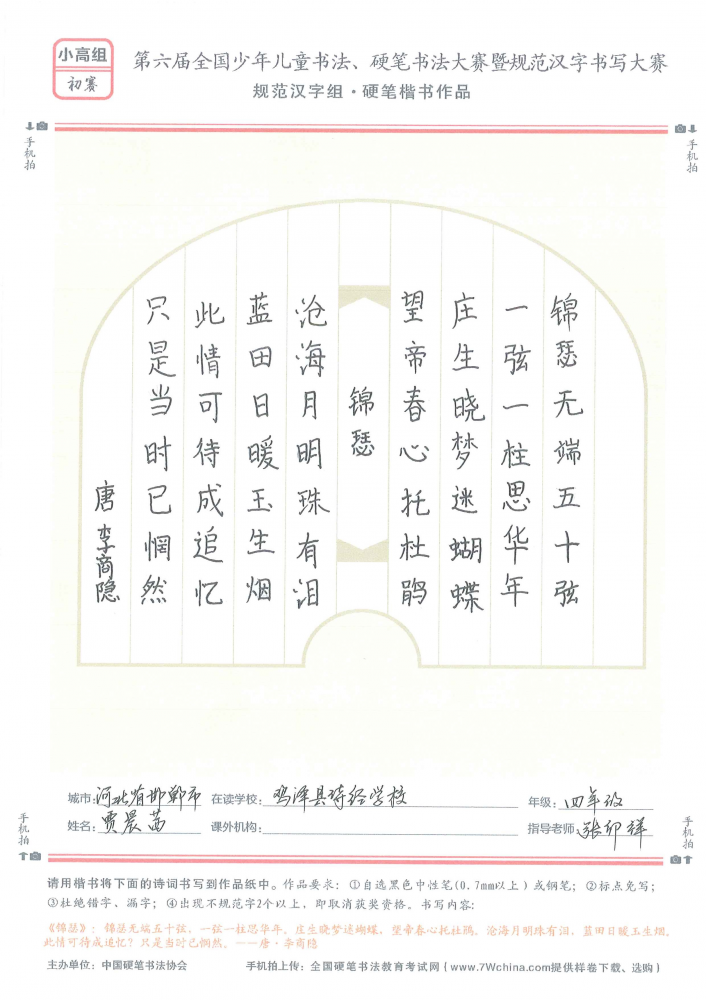 小高组
初赛
第六届全国少年儿童书法、硬笔书法大赛暨规范汉字书写大赛
规范汉字组·硬笔楷书作品
手机拍
手机拍
锦瑟无端五十弦
一弦一柱思华年
庄生晓梦迷蝴蝶
望帝春心托杜鹃
锦瑟
沧海月明珠有泪
蓝田日暖玉生烟
此情可待成追忆
只是当时已惘然
唐 李商隐
城市:河北省邯郸市 在读学校:鸡泽县诗经学校 年级:四年级
姓名:贾晨茜 课外机构: 指导老师:张卯祥
手机拍
手机拍
请用楷书将下面的诗词书写到作品纸中。作品要求:①自选黑色中性笔(0.7mm以上)或钢笔;②标点免写;
③杜绝错字、漏字;④出现不规范字2个以上,即取消获奖资格。书写内容:
《锦瑟》:锦瑟无端五十弦,一弦一柱思华年。庄生晓梦迷蝴蝶,望帝春心托杜鹃。沧海月明珠有泪,蓝田日暖玉生烟。
此情可待成追忆?只是当时已惘然。——唐·李商隐
主办单位:中国硬笔书法协会 手机拍上传:全国硬笔书法教育考试网(www.7Wchina.com提供样卷下载、选购)